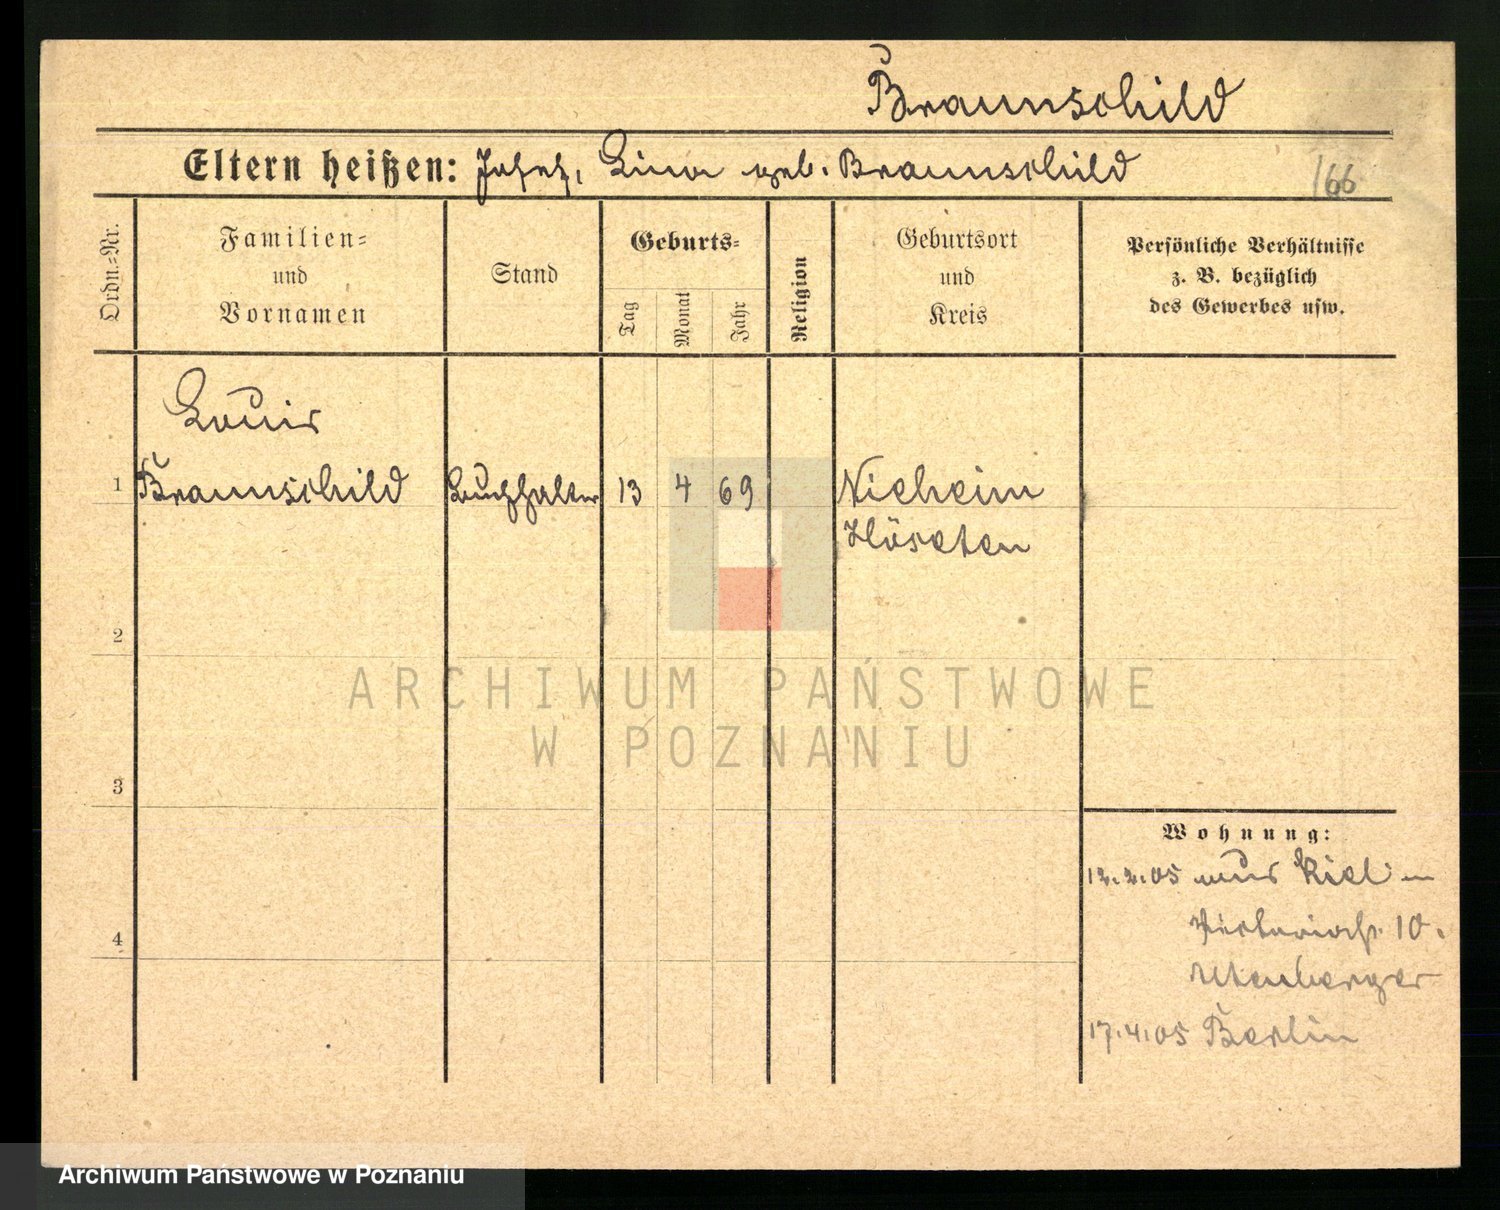 Braunschild
Eltern heißen: Josef, Lina geb. Braunschild
166
Ordn.-Nr.
Familien-
und
Vornamen
Stand
Geburts-
Tag
Monat
Jahr
Religion
Geburtsort
und
Kreis
Persönliche Verhältnisse
z. B. bezüglich
des Gewerbes usw.
Louis
1 Braunschild Buchhalter 13 4 69 Nieheim
Höxeten
2
3
4
Wohnung:
12.2.05 aus Kiel
10.
17.4.05 Berlin
ARCHIWUM PAŃSTWOWE
W POZNANIU
Archiwum Państwowe w Poznaniu